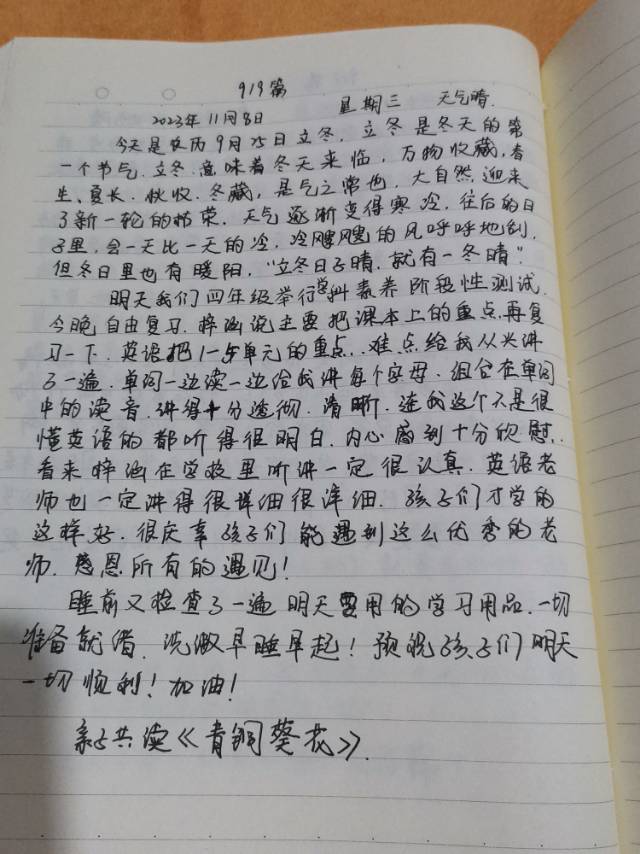 919篇
2023年11月8日 星期三 天气晴.
今天是农历9月25日立冬. 立冬是冬天的第
一个节气. 立冬.意味着冬天来临, 万物收藏, 春
生、夏长. 秋收. 冬藏, 是气之常也. 大自然.迎来
了新一轮的枯荣. 天气逐渐变得寒冷. 往后的日
子里, 会一天比一天的冷. 冷飕飕的风呼呼地刮.
但冬日里也有暖阳, “立冬日子晴. 就有一冬晴”.
明天我们四年级举行学科素养阶段性测试.
今晚自由复习. 梓涵说主要把课本上的重点.再复
习一下. 英语把1一5单元的重点. 难点给我从头讲
了一遍. 单词一边读一边给我讲每个字母. 组合在单词
中的读音. 讲得十分透彻. 清晰. 连我这个不是很
懂英语的都听得很明白. 内心感到十分欣慰.
看来梓涵在学校里听讲一定很认真. 英语老
师也一定讲得很详细很详细. 孩子们才学的
这样好. 很庆幸孩子们能遇到这么优秀的老
师. 感恩所有的遇见!
睡前又检查了一遍明天要用的学习用品. 一切
准备就绪. 洗漱早睡早起! 预祝孩子们明天
一切顺利! 加油!
亲子共读《青铜葵花》.